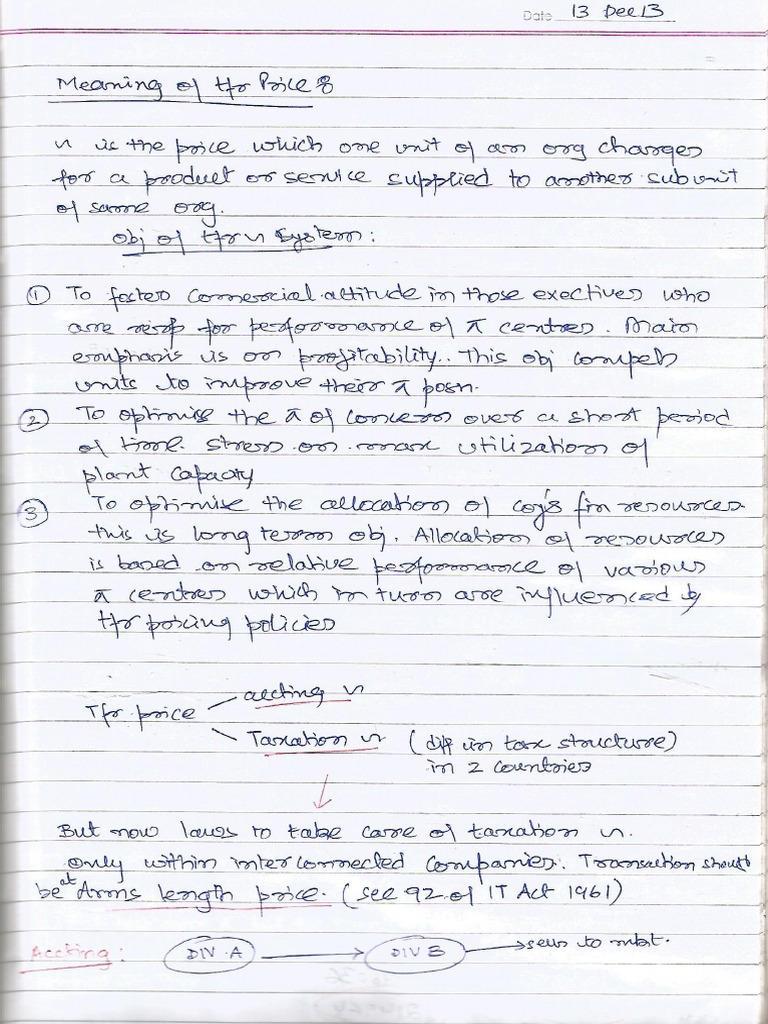 Date 13 Dec 13
Meaning of tfr Price :
" is the price which one unit of an org charges
for a product or service supplied to another subunit
of same org.
Obj of tfr " System :
① To foster Comercial attitude in those exectives who
are resp for performance of π centres. Main
emphasis is on profitability. This obj compels
units to improve their π posn.
② To optimise the π of concern over a short period
of time. stress on max utilization of
plant capacity
③ To optimise the allocation of coy's fin resources.
this is long term obj. Allocation of resources
is based on relative performance of various
π centres which in turn are influenced by
tfr pricing policies
accting "
Tfr price
Taxation " (diff in tax structure)
in 2 countries
But now laws to take care of taxation ".
only within interconnected companies. Transaction should
be at Arms length price. (sec 92 of IT Act 1961)
Accting : DIV. A DIV B sells to mkt.